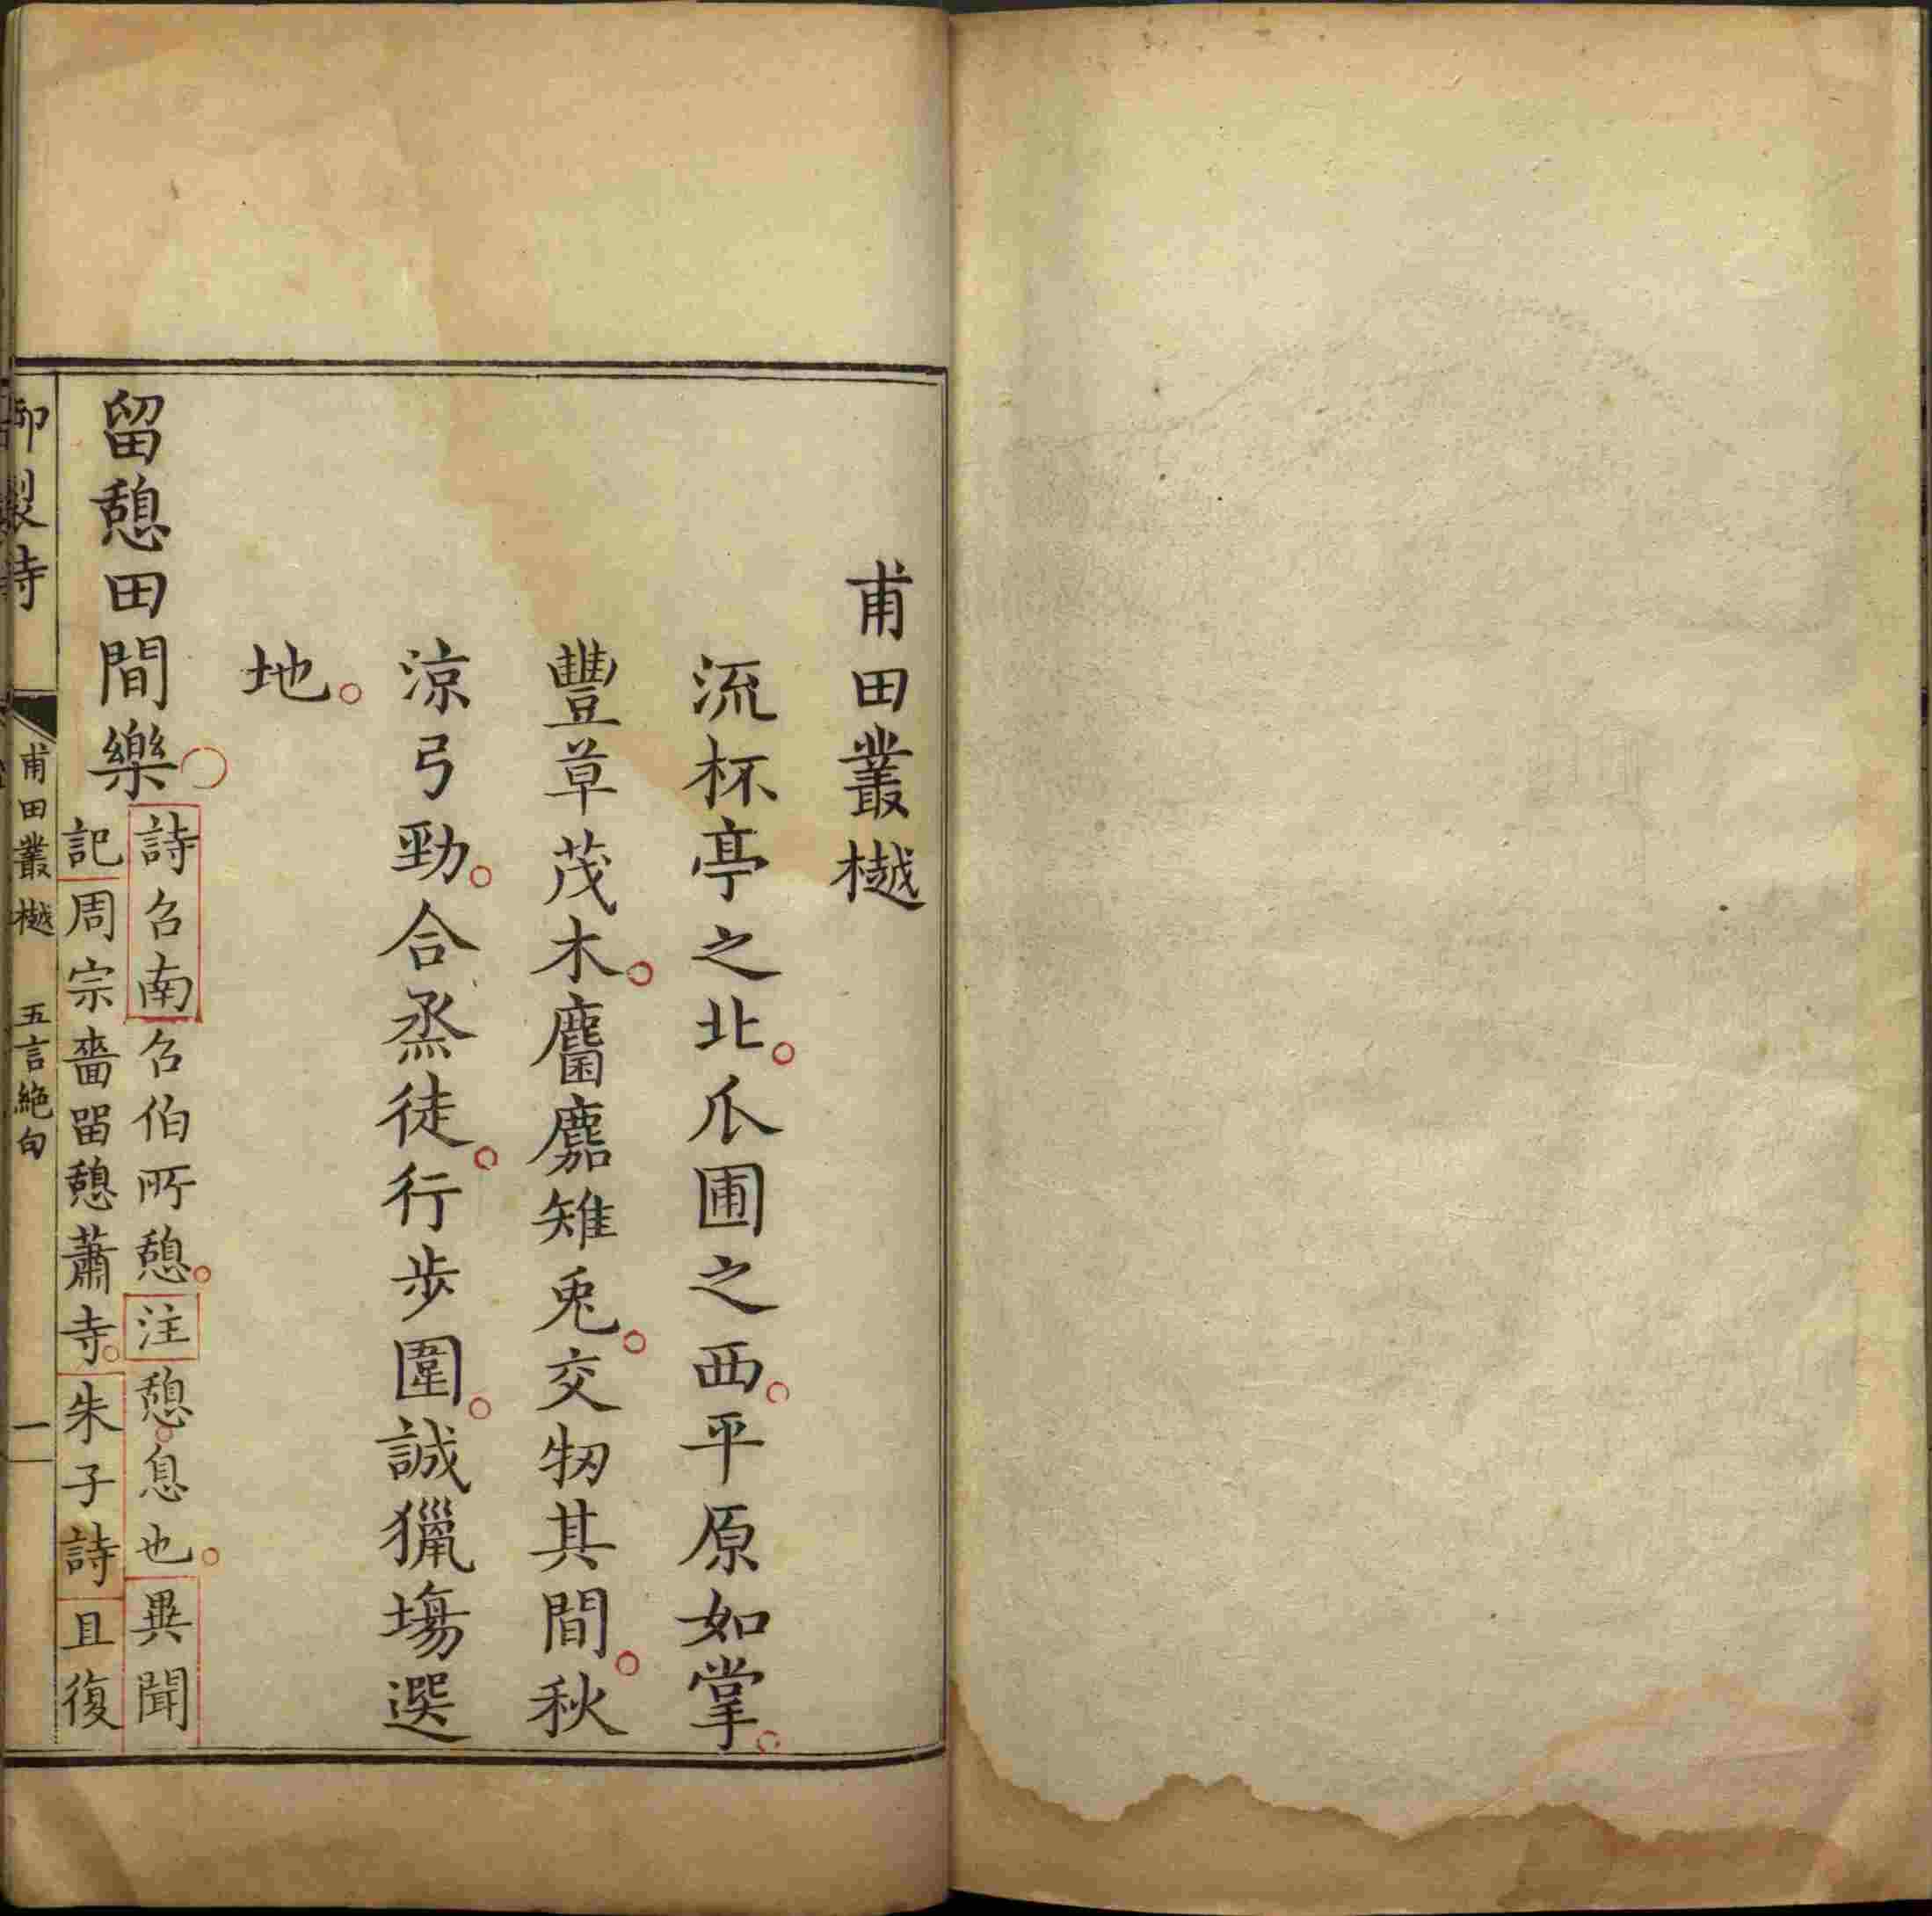 甫田叢樾
流杯亭之北。瓜圃之西。平原如掌。
豐草茂木。麕麚雉兔。交牣其間。秋
涼弓勁。合烝徒。行步圍。誠獵場選
地。
留憩田間樂
詩召南召伯所憩。注憩息也。異聞
記周宗嗇留憩蕭寺。朱子詩且復
御製詩 甫田叢樾 五言絶句 一